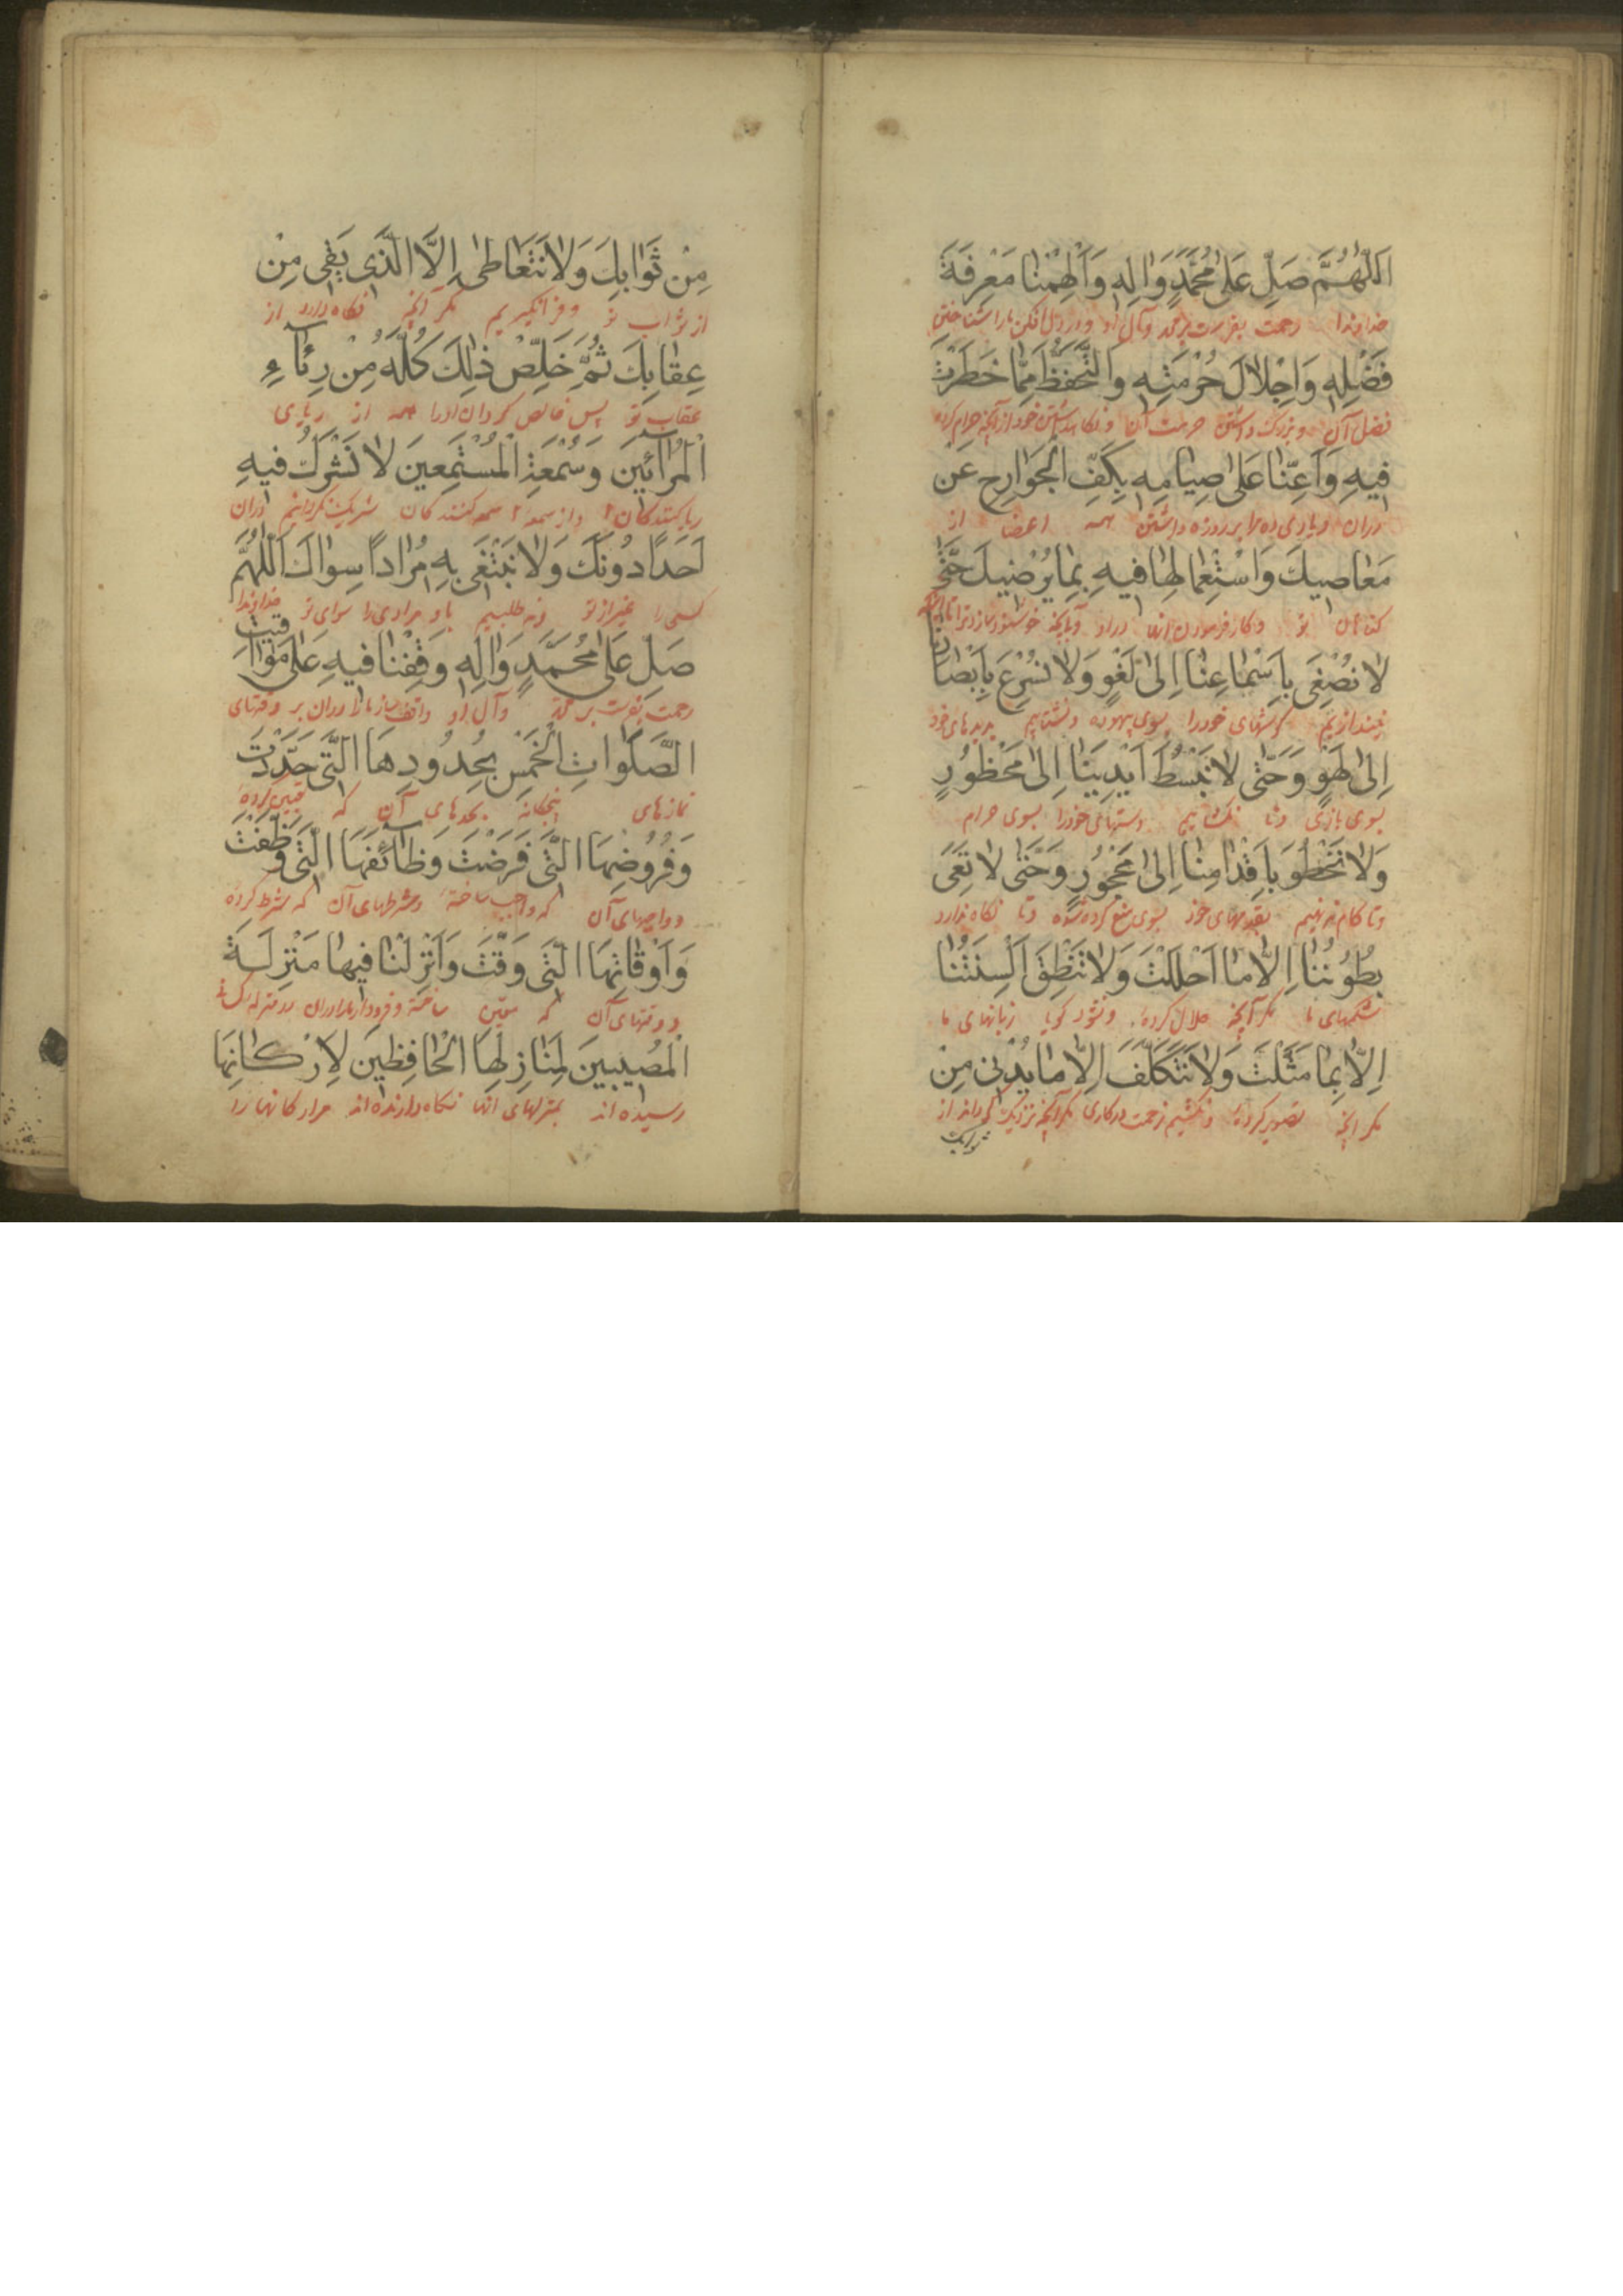 اَللّٰهُمَّ صَلِّ عَلٰى مُحَمَّدٍ وَاٰلِهِ وَاَلْهِمْنٰا مَعْرِفَةَ
خداوندا رحمت بفرست بر محمد وآل او ودر دل افکن مارا شناختن
فَضْلِهِ وَاِجْلاٰلَ حُرْمَتِهِ وَالتَّحَفُّظَ مِمّٰا حَظَرْتَ
فضل آن وبزرک داشتن حرمت آن ونکاهداشتن خود از آنچه حرام کرده
فيهِ وَاَعِنّٰا عَلٰى صِيٰامِهِ بِكَفِّ الْجَوٰارِحِ عَنْ
دران ویاری ده مارا بر روزه داشتن همه اعضا از
مَعٰاصيكَ وَاسْتِعْمٰالِهٰا فيهِ بِمٰا يُرْضيكَ حَتّٰى
کناهان تو وکار فرمودن انها دراو وبآنچه خوشنود سازد ترا تا آنکه
لاٰ نُصْغِىَ بِاَسْمٰاعِنٰا اِلىٰ لَغْوٍ وَلاٰ نُسْرِعَ بِاَبْصٰارِنٰا
نیندازیم کوشهای خودرا بسوی بیهوده ونشتابیم بدیدهای خود
اِلىٰ لَهْوٍ وَحَتّٰى لاٰ نَبْسُطَ اَيْدِيَنٰا اِلىٰ مَحْظُورٍ
بسوی بازی وتا نکشاییم دستهای خودرا بسوی حرام
وَلاٰ نَخْطُوَ بِاَقْدٰامِنٰا اِلىٰ مَحْجُورٍ وَحَتّٰى لاٰ تَعِىَ
وتا کام ننهیم بقدمهای خود بسوی منع کرده شده وتا نکاه ندارد
بُطُونُنٰا اِلاّٰ مٰا اَحْلَلْتَ وَلاٰ تَنْطِقَ اَلْسِنَتُنٰا
شکمهای ما مکر آنچه حلال کرده ونشود کویا زبانهای ما
اِلاّٰ بِمٰا مَثَّلْتَ وَلاٰ نَتَكَلَّفَ اِلاّٰ مٰا يُدْنى مِنْ
مکر انچه تصویر کرده ونکشیم زحمت درکاری مکر آنچه نزدیک کرداند از
ثوابک
مِنْ ثَوٰابِكَ وَلاٰ نَتَعٰاطىٰ اِلاَّ الَّذى يَقى مِنْ
از ثواب تو وفرانکیریم مکر آنچه نکاه دارد از
عِقٰابِكَ ثُمَّ خَلِّصْ ذٰلِكَ كُلَّهُ مِنْ رِئٰاۤءِ
عقاب تو پس خالص کردان اورا همه از ریای
الْمُرٰاۤئينَ وَسُمْعَةِ الْمُسْتَمِعينَ لاٰ نَشْرَكُ فيهِ
ریاکنندکان واز سمعه سمعه کنندکان شریک نکردانیم دران
اَحَدًا دُونَكَ وَلاٰ نَبْتَغى بِهِ مُرٰادًا سِوٰاكَ اَللّٰهُمَّ
کسی را غیر از تو ونه طلبیم باو مرادی را سوای تو خداوندا
صَلِّ عَلٰى مُحَمَّدٍ وَاٰلِهِ وَقِفْنٰا فيهِ عَلٰى مَوٰاقيتِ
رحمت بفرست بر محمد وآل او واقف ساز مارا دران بر وقتهای
الصَّلَوٰاتِ الْخَمْسِ بِحُدُودِهَا الَّتى حَدَّدْتَ
نمازهای پنجکانه بحدهای آن که تعیین کرده
وَفُرُوضِهَا الَّتى فَرَضْتَ وَظٰاۤئِفَهَا الَّتى وَظَّفْتَ
وواجبهای آن که واجب ساخته وشرطهای آن که شرط کرده
وَاَوْقٰاتِهَا الَّتى وَقَّتَّ وَاَنْزِلْنٰا فيهٰا مَنْزِلَةَ
ووقتهای آن که معین ساخته وفرود آر مارا دران در منزله
الْمُصيبينَ لِمَنٰازِلِهَا الْحٰافِظينَ لِاَرْكٰانِهَا
رسیده اند بمنزلهای انها نکاه دارنده اند مر ارکانها را